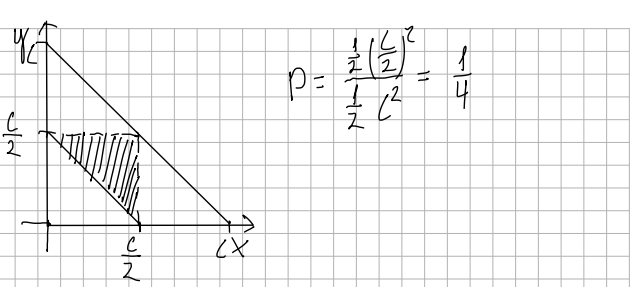 y
c
c/2
c/2
c x
P = (1/2 (c/2)^2) / (1/2 c^2) = 1/4